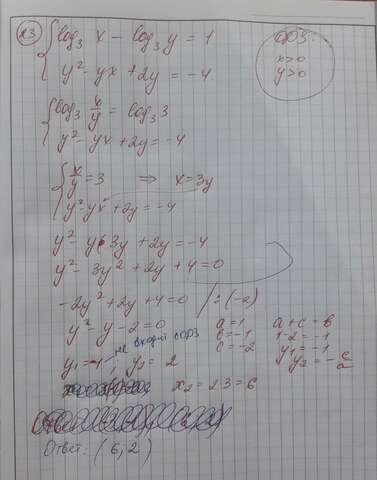 23
log₃ x − log₃ y = 1
y² − yx + 2y = −4
ОДЗ:
x>0
y>0
log₃ x/y = log₃ 3
y² − yx + 2y = −4
x/y = 3 ⇒ x = 3y
y² − yx + 2y = −4
y² − y·3y + 2y = −4
y² − 3y² + 2y + 4 = 0
−2y² + 2y + 4 = 0 / : (−2)
y² − y − 2 = 0
a = 1
b = −1
c = −2
a + c = b
1−2 = −1
y₁ = −1
y₂ = −c/a
y₁ = −1 не входит ОДЗ, y₂ = 2
x₂ = 2·3 = 6
Ответ: (6; 2)